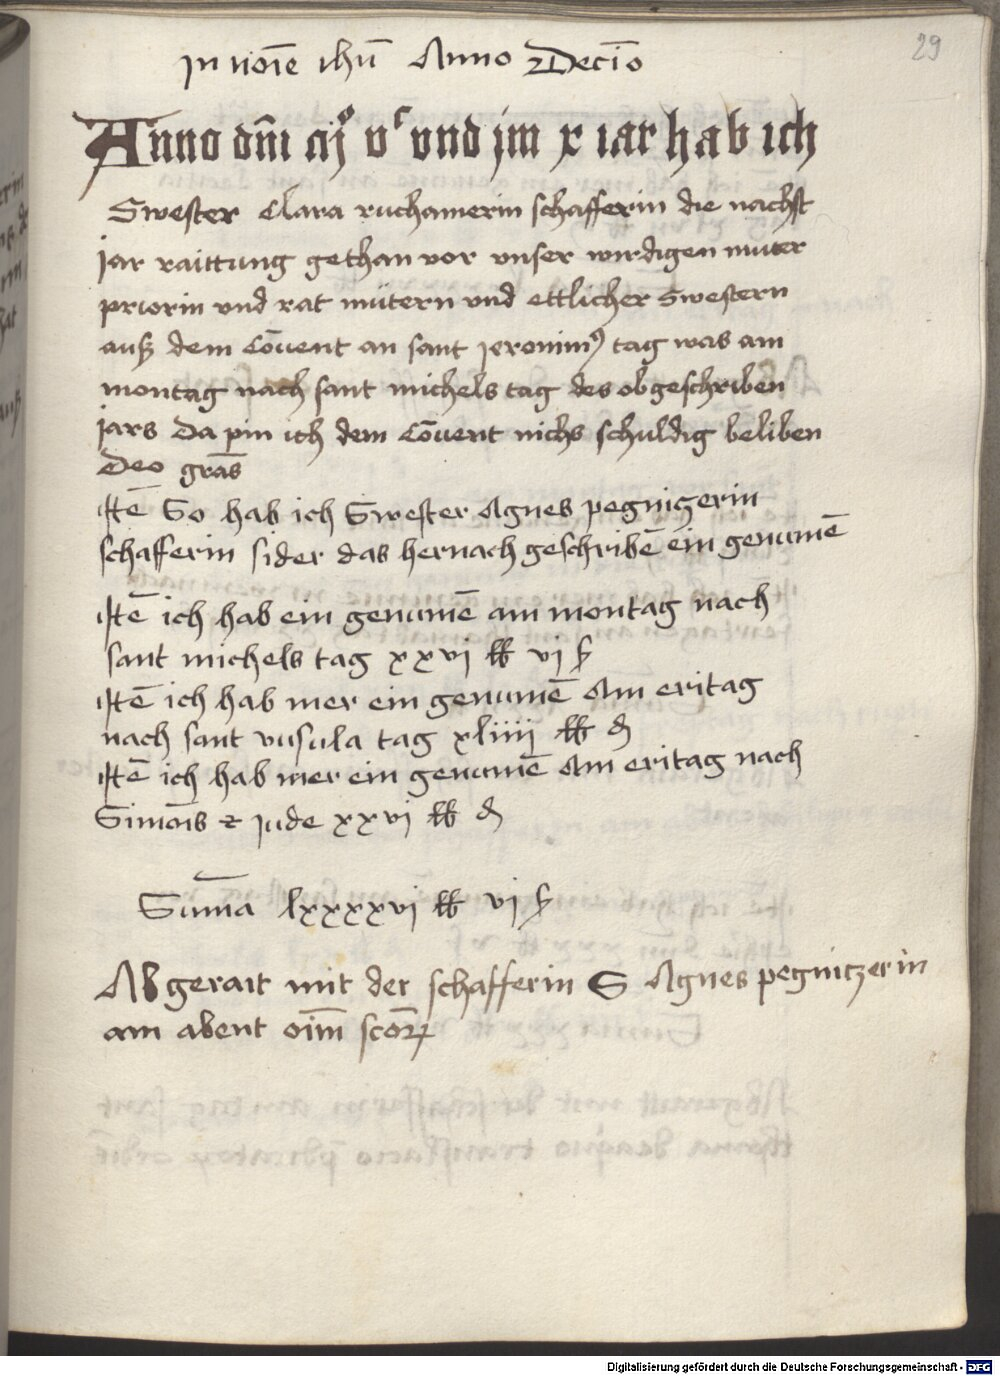 29
In noīe ihū Anno Decīo
Anno dm̄i mͦ vᶜ vnd jm x iar hab ich
Swester Clara ruchamerin schafferin die nachst
jar raittung gethan vor vnser wirdigen muter
priorin vnd rat mütern vnd ettlicher swestern
auß dem Cōuent an sant jeronimꝰ tag was am
montag nach sant michels tag des obgeschriben
jars Da pin ich dem Cōuent nichs schuldig beliben
Deo grās
Itē So hab ich Swester Agnes pegniczerin
schafferin sider das hernach geschribē ein genumē
Itē ich hab ein genumē am montag nach
sant michels tag xxvi lb vi ß
Itē ich hab mer ein genumē Am eritag
nach sant vrsula tag xliiii lb ₰
Itē ich hab mer ein genumē Am eritag nach
Simōis ⁊ jude xxvi lb ₰
Sum̄a lxxxxvi lb vi ß
Abgerait mit der schafferin S Agnes pegnitzerin
am abent oīm̄ scōꝝ
Digitalisierung gefördert durch die Deutsche Forschungsgemeinschaft - DFG